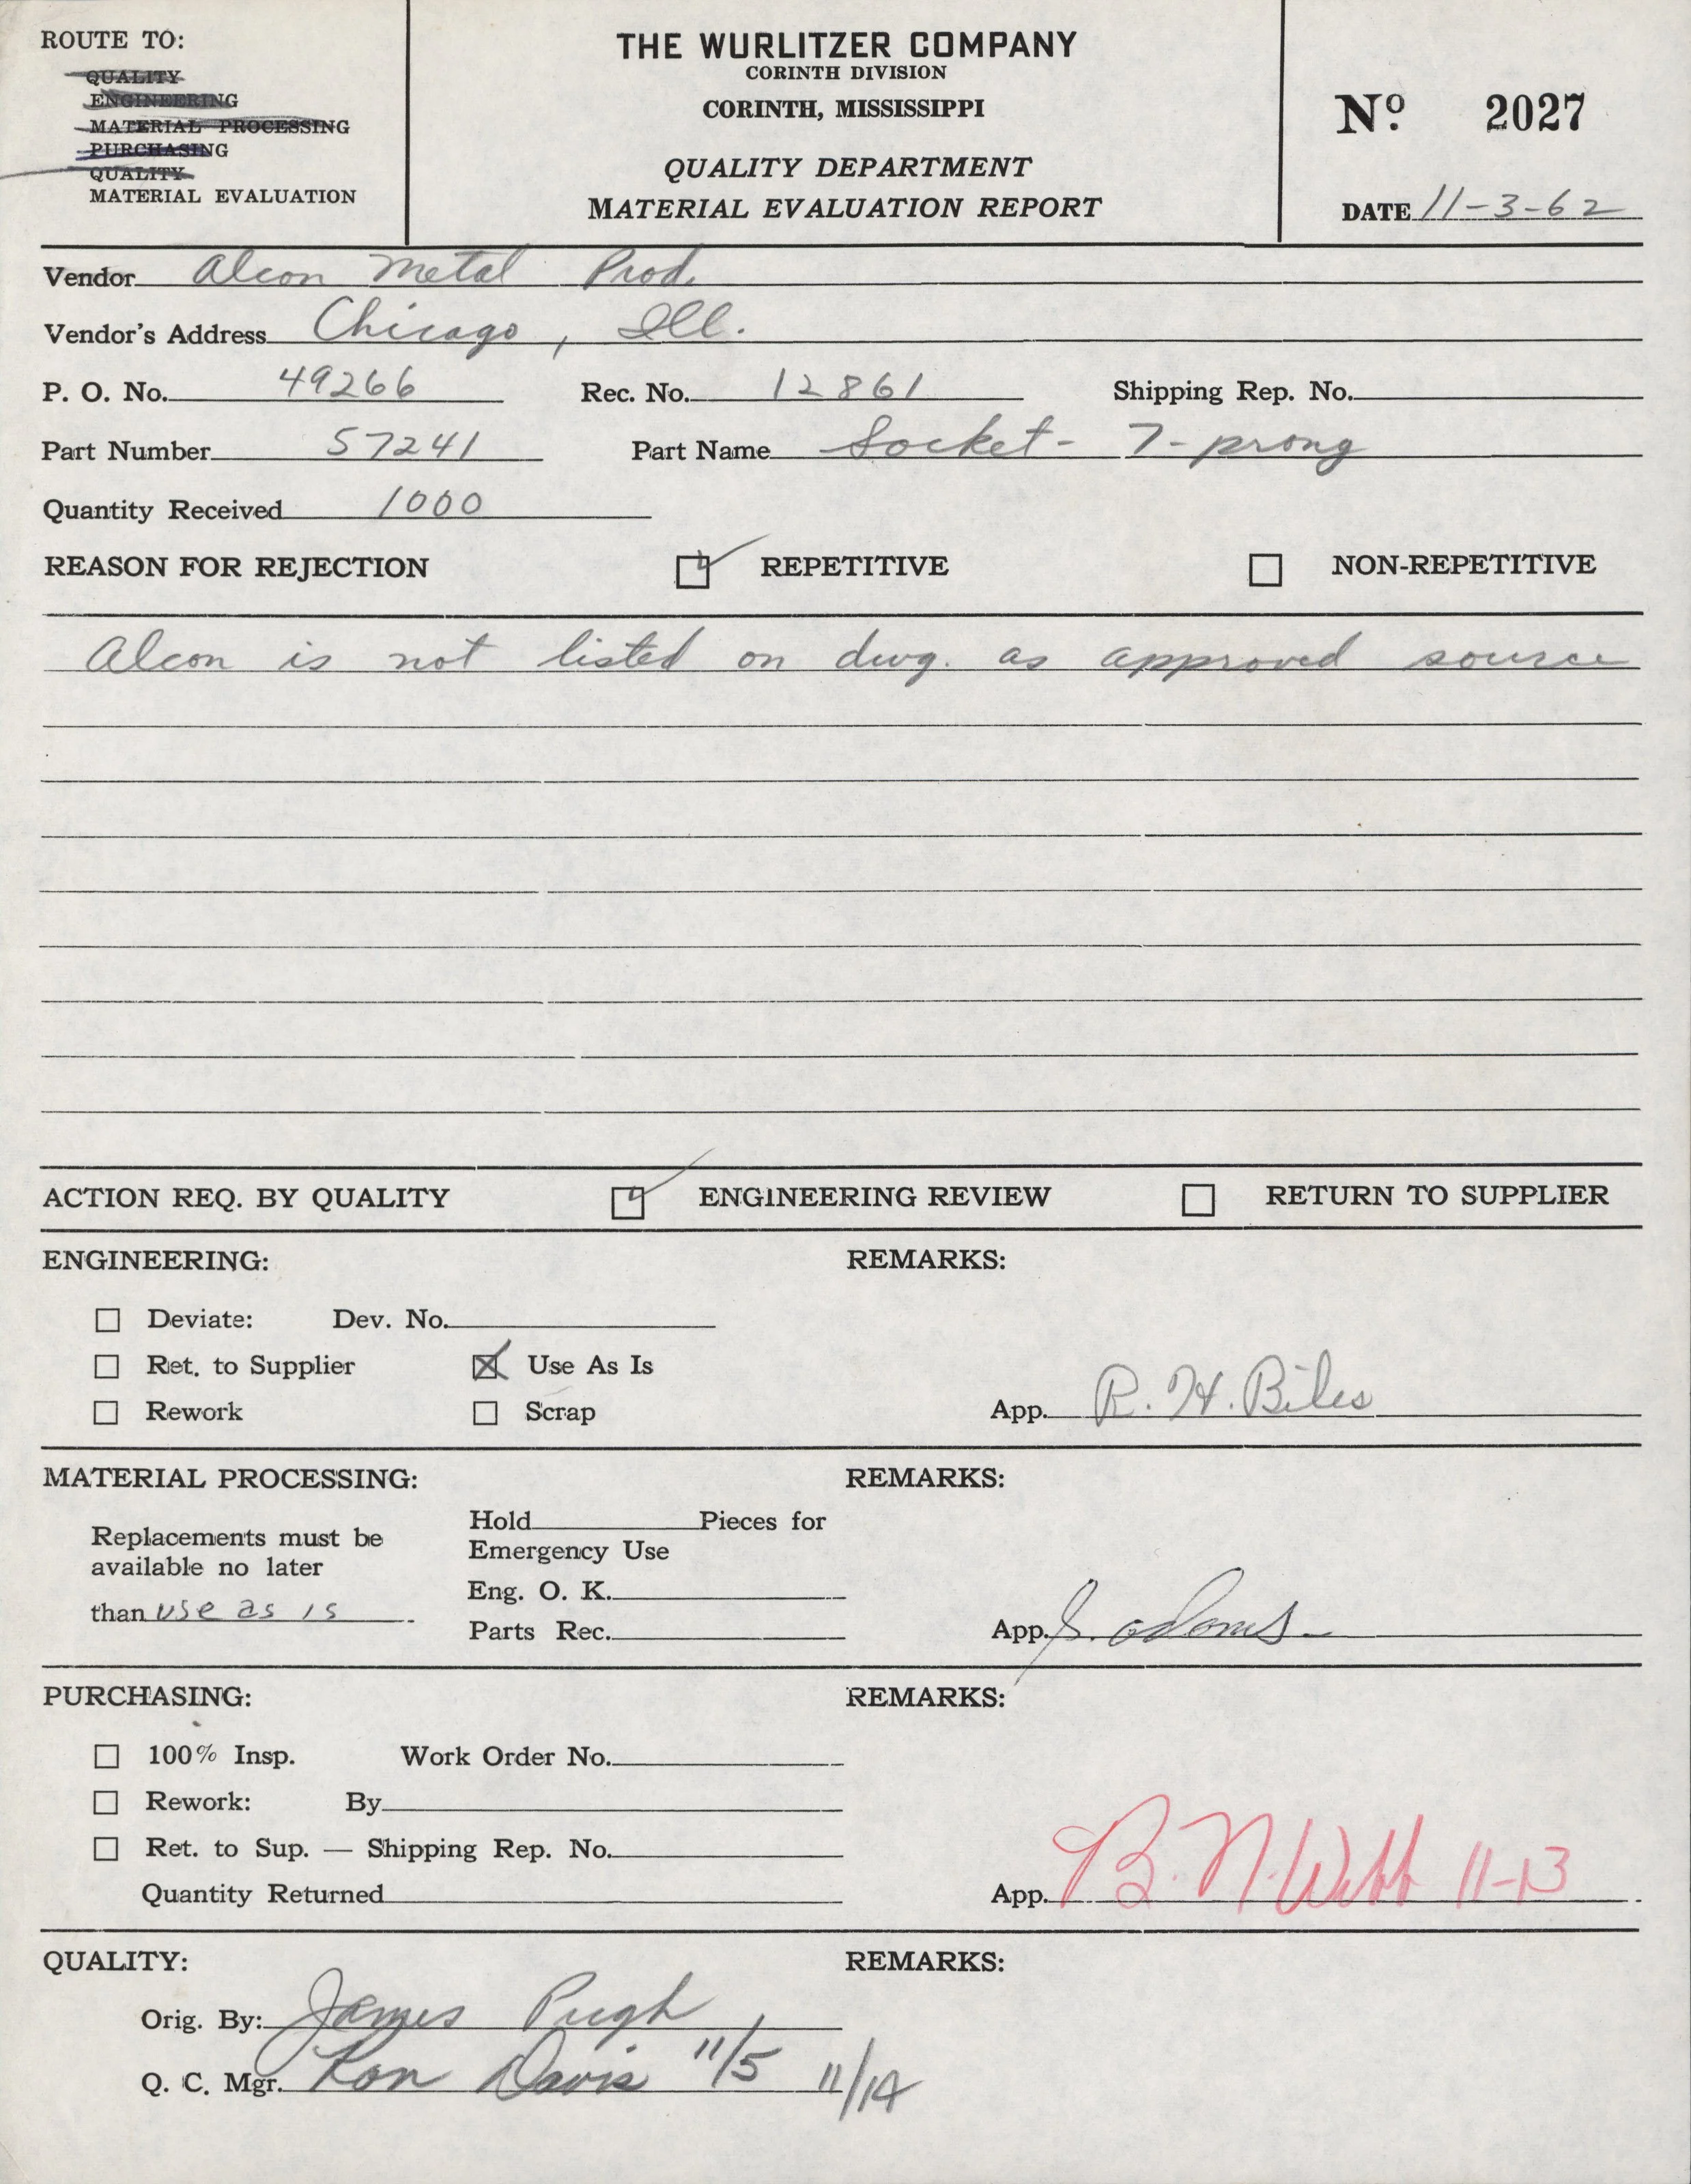 ROUTE TO:
QUALITY
ENGINEERING
MATERIAL PROCESSING
PURCHASING
QUALITY
MATERIAL EVALUATION
THE WURLITZER COMPANY
CORINTH DIVISION
CORINTH, MISSISSIPPI
QUALITY DEPARTMENT
MATERIAL EVALUATION REPORT
Nº 2027
DATE 11-3-62
Vendor Alcon Metal Prod.
Vendor's Address Chicago, Ill.
P. O. No. 49266 Rec. No. 12861 Shipping Rep. No.
Part Number 57241 Part Name Socket - 7-prong
Quantity Received 1000
REASON FOR REJECTION REPETITIVE NON-REPETITIVE
Alcon is not listed on dwg. as approved source
ACTION REQ. BY QUALITY ENGINEERING REVIEW RETURN TO SUPPLIER
ENGINEERING: REMARKS:
Deviate: Dev. No.
Ret. to Supplier Use As Is
Rework Scrap App. R. H. Biles
MATERIAL PROCESSING: REMARKS:
Replacements must be
available no later
than use as is
Hold Pieces for
Emergency Use
Eng. O. K.
Parts Rec. App. S. Adams
PURCHASING: REMARKS:
100% Insp. Work Order No.
Rework: By
Ret. to Sup. — Shipping Rep. No.
Quantity Returned App. B. N. Webb 11-13
QUALITY: REMARKS:
Orig. By: James Pugh
Q. C. Mgr. Ron Davis 11/5 11/14